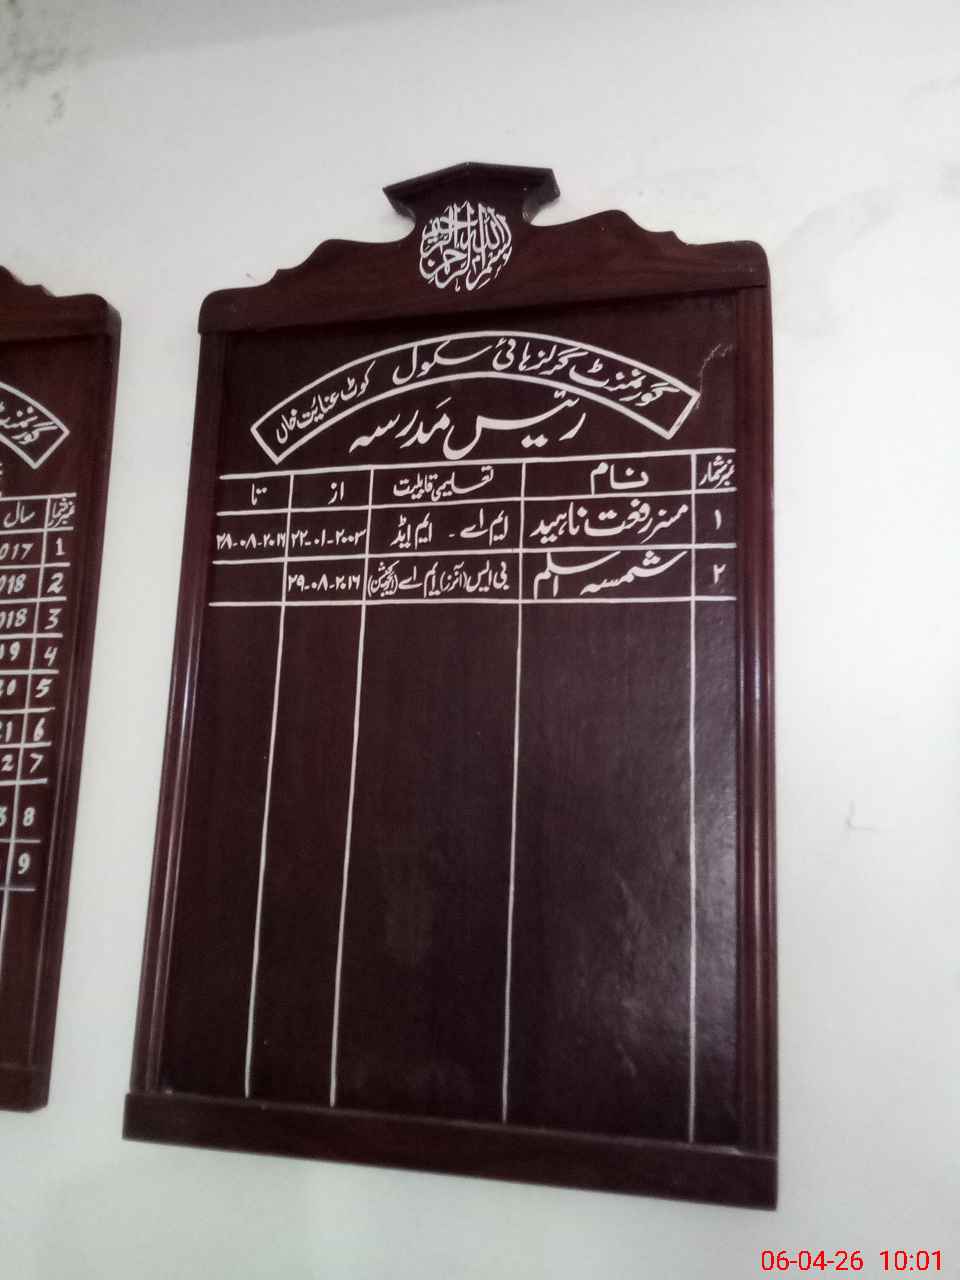 بسم الله الرحمن الرحيم
گورنمنٹ گرلز ہائی سکول کوٹ عنایت خاں
رئیس مدرسہ
نمبر شمار نام تعلیمی قابلیت از تا
۱ مسز رفعت ناہید ایم اے - ایم ایڈ ۲۲-۰۱-۲۰۰۳ ۲۸-۰۸-۲۰۱۶
۲ شمسہ اسلم بی ایس (آنرز) ایم اے (ایجوکیشن) ۲۹-۰۸-۲۰۱۶
گورنمنٹ
نمبر شمار سال
1 2017
2 018
3 018
4 19
5 20
6 21
7 2
8 3
9
06-04-26 10:01